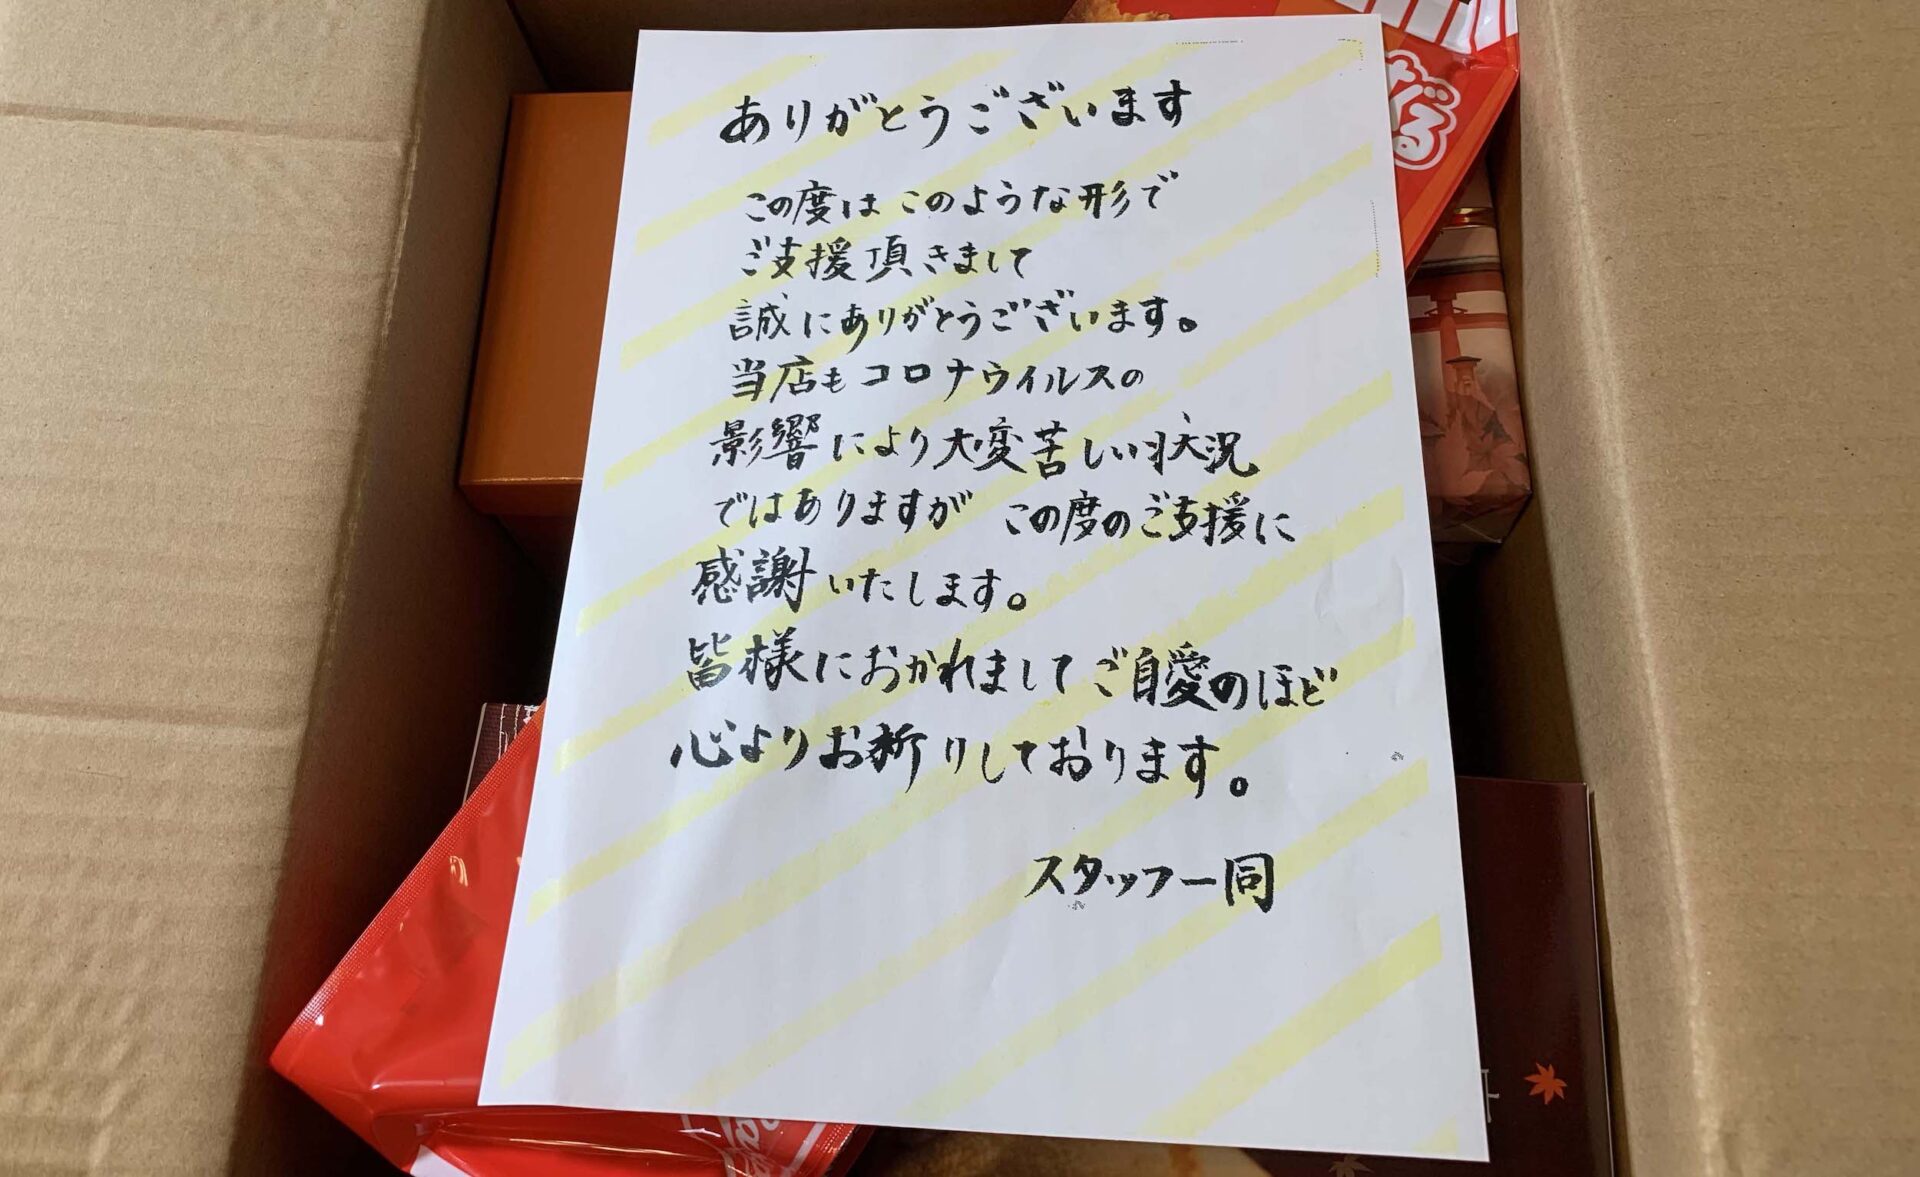 ありがとうございます
この度はこのような形で
ご支援頂きまして
誠にありがとうございます。
当店もコロナウイルスの
影響により大変苦しい状況
ではありますが この度のご支援に
感謝いたします。
皆様におかれましてご自愛のほど
心よりお祈りしております。
スタッフ一同